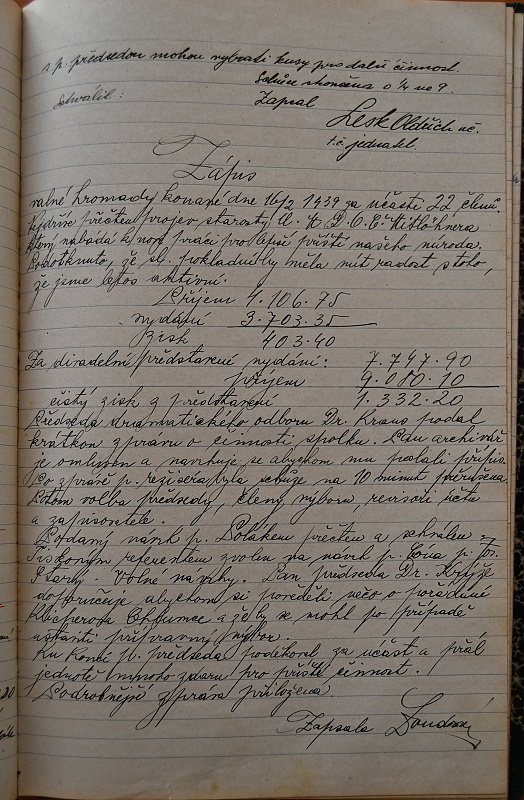 s p. předsedou mohou vybrati kusy pro další činnost.
Schůze skončena o ¼ na 9.
Schválil: Zapsal
Lesk Oldřich vč.
t.č. jednatel.
Zápis
valné hromady konané dne 16/2 1939 za účasti 22 členů.
Nejdříve přečten projev starosty Ú. M. D. O. Č. Hitlöhnera
který nabádá k nové práci pro lepší příští našeho národa.
Podotknuto, že sl. pokladní by měla mít radost z toho,
že jsme letos aktivní.
Příjem 4.106.75
vydání 3.703.35
Zisk 403.40
Za divadelní představení vydání: 7.747.90
příjem 9.080.10
čistý zisk z představení 1.332.20
Předseda dramatického odboru Dr. Kraus podal
krátkou zprávu o činnosti spolku. Pan archivář
je omluven a navrhuje se abychom mu poslali přípis.
Po zprávě p. režiséra byla schůze na 10 minut přerušena.
Potom volba předsedy, členů výboru, revisorů účtů
a zapisovatele.
Podaný návrh p. Polákem přečten a schválen
Tiskovým referentem zvolen na návrh p. p. Jos.
Starý. Volné návrhy. Pan předseda Dr.
doporučuje abychom si pověděli něco o pořádání
Klicperova Chlumce a že by se mohl po případě
ustaviti přípravný výbor.
Ku konci p. předseda poděkoval za účast a přál
jednotě mnoho zdaru pro příští činnost.
Podrobnější zpráva přiložena
Zapsala